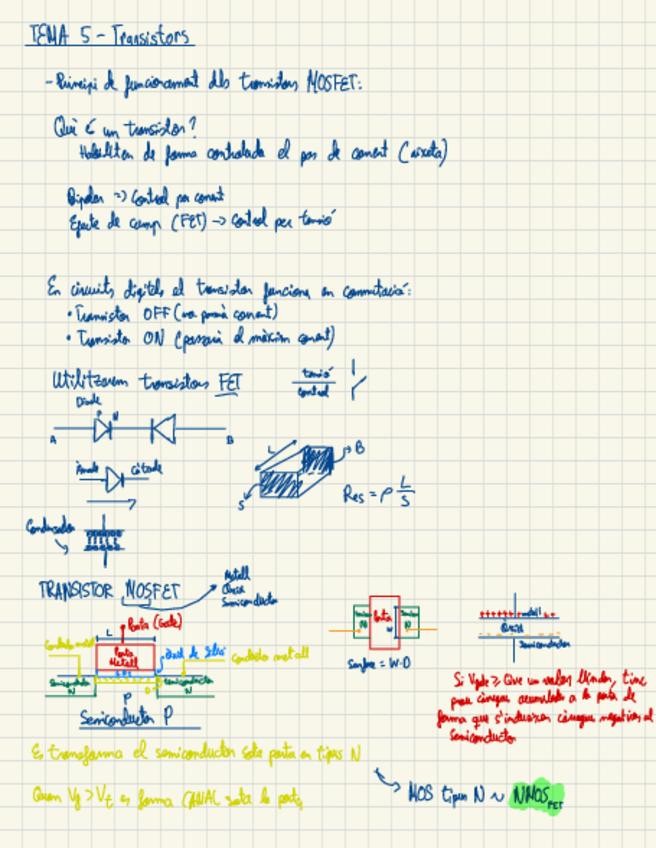 TEMA 5 - Transistors
- Principi de funcionament dels transistors MOSFET:
Què és un transistor?
Habiliten de forma controlada el pas de corrent (aixeta)
Bipolar => Control per corrent
Efecte de camp (FET) -> Control per tensió
En circuits digitals el transistor funciona en commutació:
• Transistor OFF (no passa corrent)
• Transistor ON (passarà el màxim corrent)
Utilitzarem transistors FET
tensió
control
Díode
P N
A B
Ànode Càtode
L
B
S
Res = ρ L/S
Condensador
TRANSISTOR MOSFET
Metall
Òxid
Semiconductor
Porta (Gate)
L
Porta
Metall
Òxid de Silici
Contacte metall
Contacte metall
Semiconductor
N
Semiconductor
N
P
Semiconductor P
Porta
N
N
W
metall
Òxid
Semiconductor
Si Vgate ≥ que un valor llindar, tinc
prou càrregues acumulades a la porta de
forma que s'indueixen càrregues negatives al
Semiconductor
Es transforma el semiconductor sota porta en tipus N
Quan Vg > Vt es forma CANAL sota la porta
MOS tipus N ~ NMOS FET